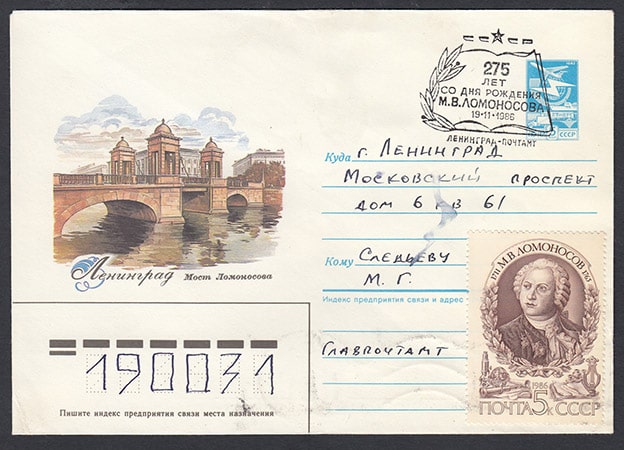 275
ЛЕТ
СО ДНЯ РОЖДЕНИЯ
М.В.ЛОМОНОСОВА
19·11·1986
ЛЕНИНГРАД-ПОЧТАМТ
СССР
Куда г. ЛЕНИНГРАД
МОСКОВСКИЙ ПРОСПЕКТ
ДОМ 6 КВ 61
Кому
М. Г.
Индекс предприятия связи и адрес
ГЛАВПОЧТАМТ
Ленинград Мост Ломоносова
190031
Пишите индекс предприятия связи места назначения
1711 М.В.ЛОМОНОСОВ 1765
1986
ПОЧТА 5К СССР